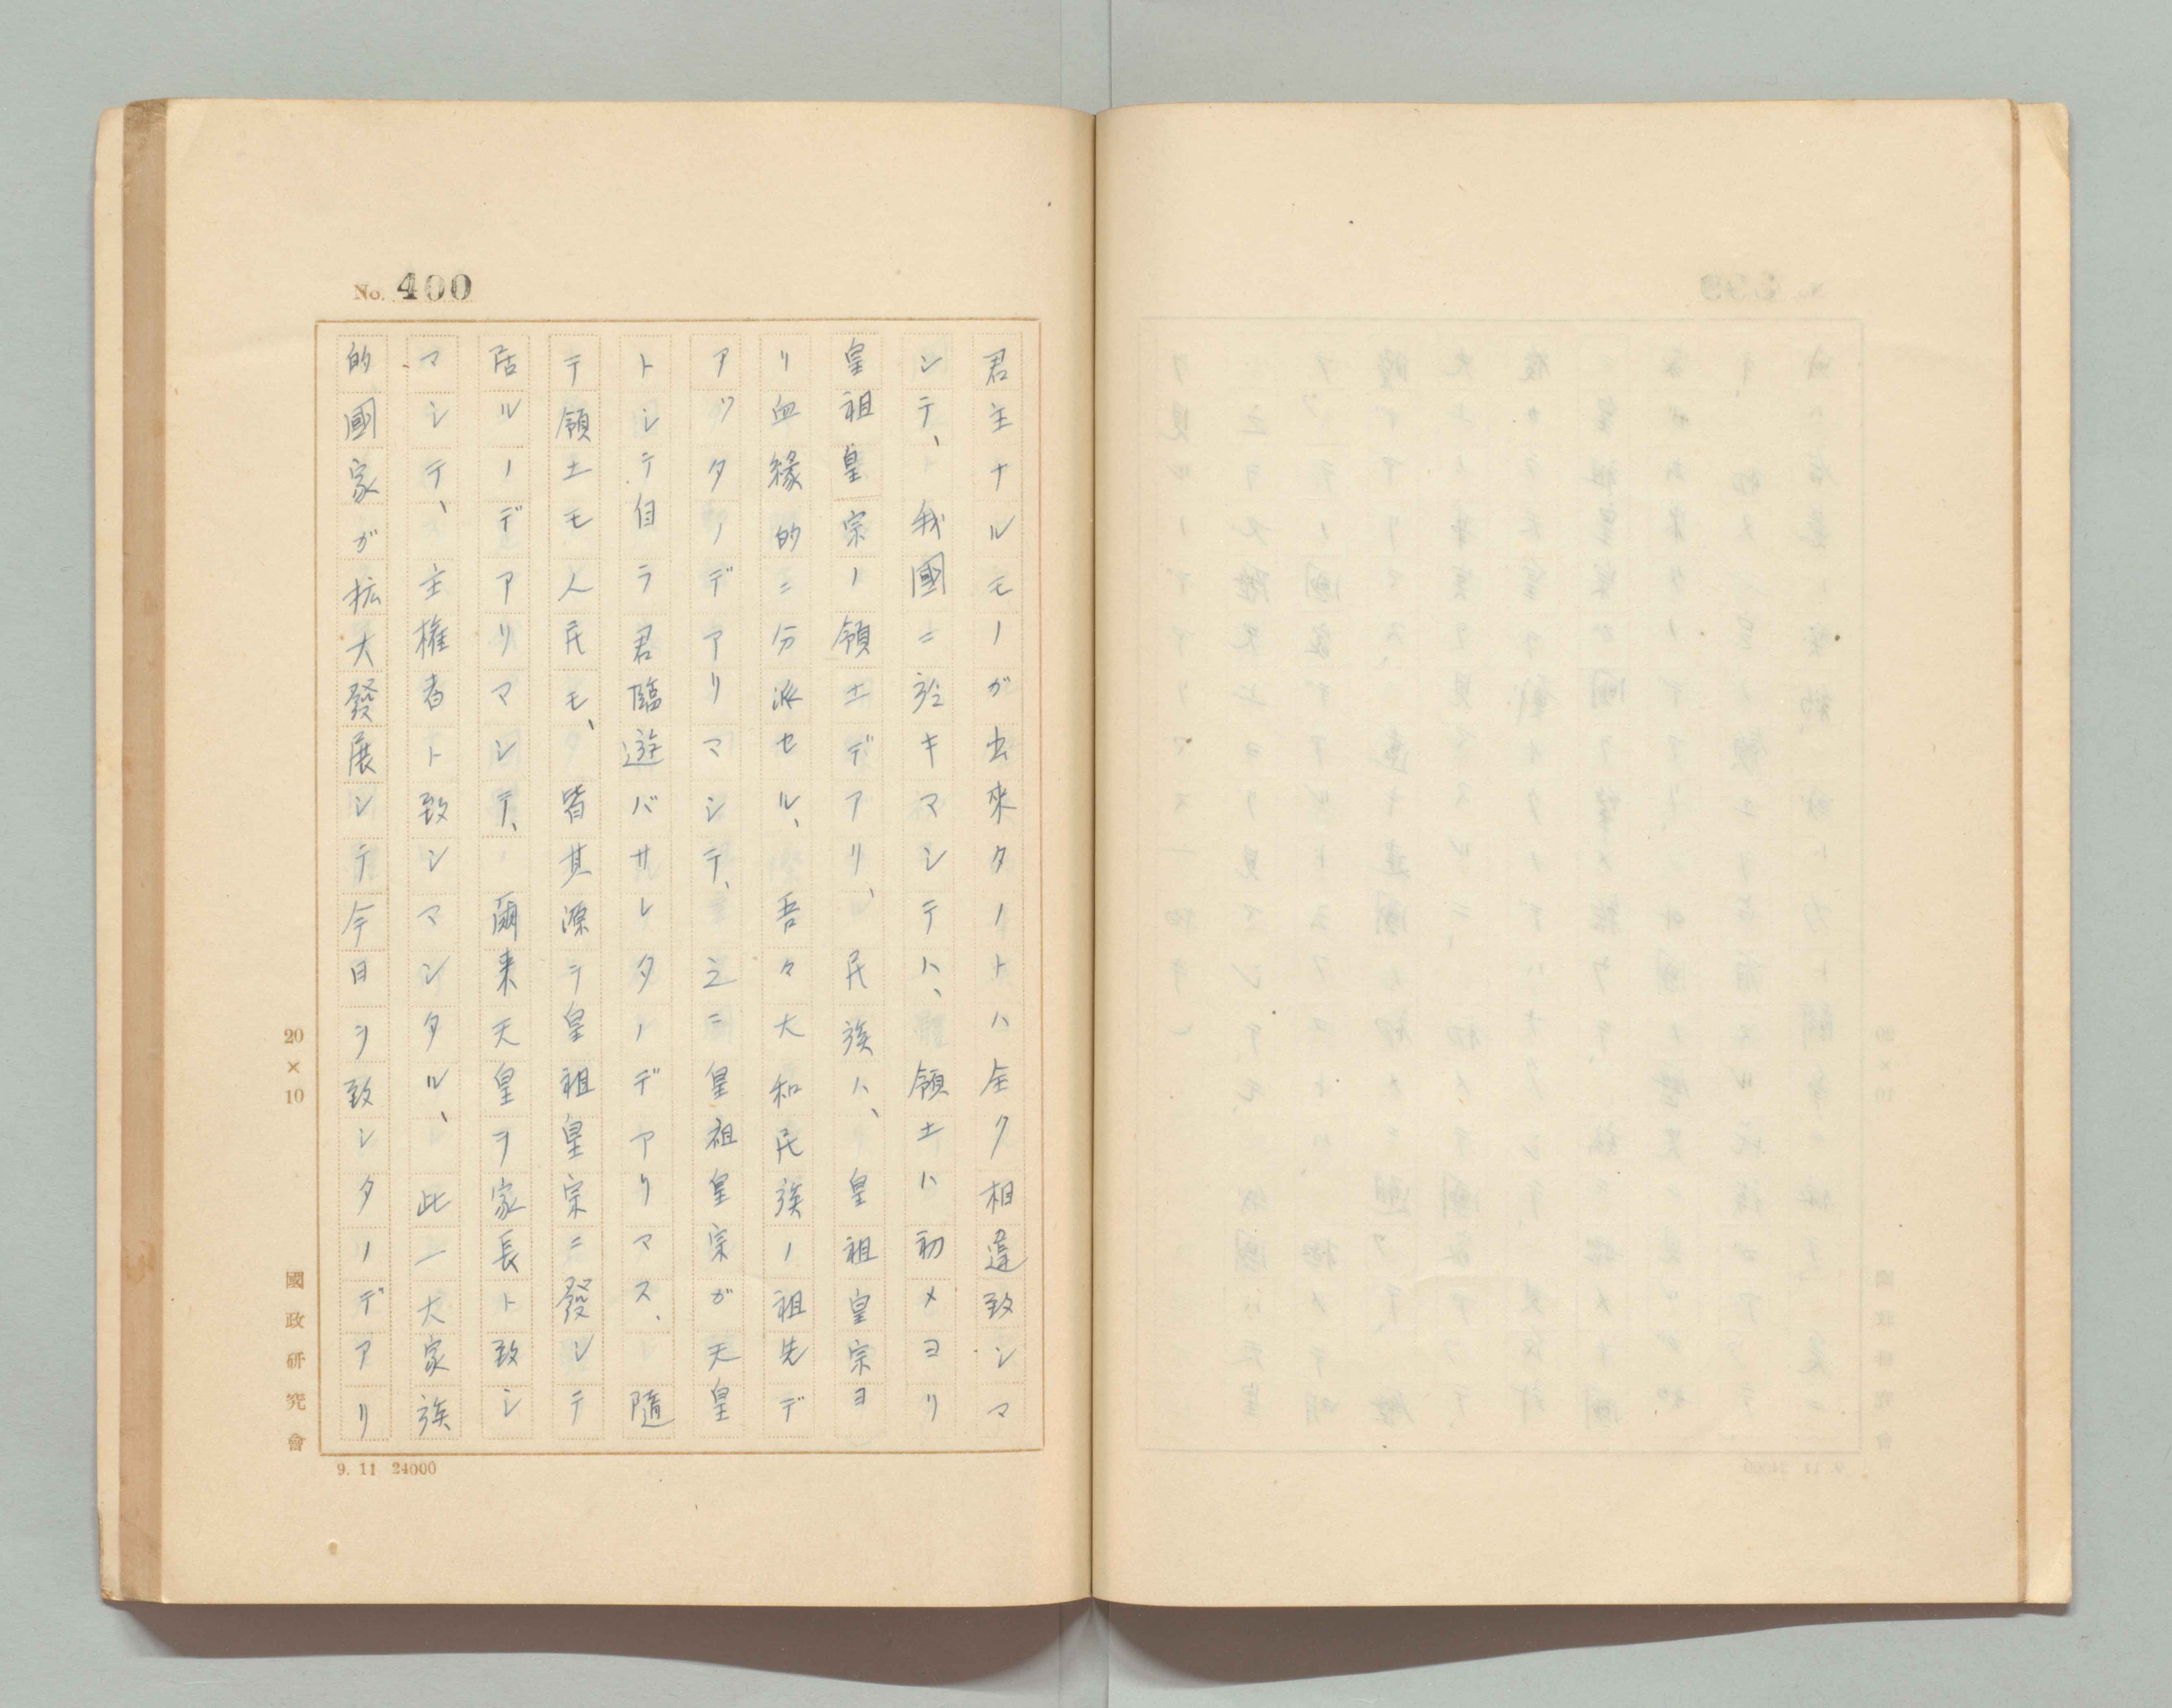 No. 400
君主ナルモノガ出來タノトハ全ク相違致シマ
シテ、我國ニ於キマシテハ、領土ハ初メヨリ
皇祖皇宗ノ領土デアリ、民族ハ、皇祖皇宗ヨ
リ血緣的ニ分派セル、吾々大和民族ノ祖先デ
アツタノデアリマシテ、之ニ皇祖皇宗ガ天皇
トシテ自ラ君臨遊バサレタノデアリマス、隨
テ領土モ人民モ、皆其源ヲ皇祖皇宗ニ發シテ
居ルノデアリマシテ、爾来天皇ヲ家長ト致シ
マシテ、主權者ト致シマシタル、此一大家族
的國家ガ拡大發展シテ今日ヲ致シタノデアリ
20×10
國政研究會
9. 11 24000